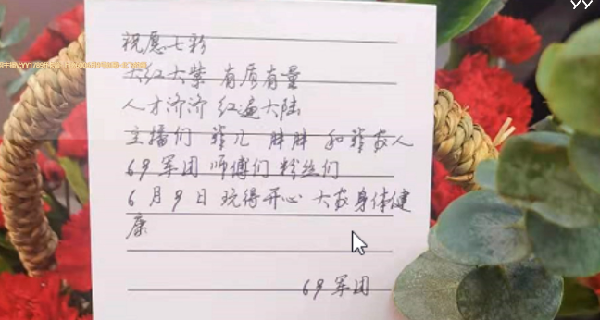 祝愿七彩
大红大紫 有质有量
人才济济 红遍大陆
主播们 菲儿 胖胖 和菲家人
69军团 师傅们 粉丝们
6月9日 玩得开心 大家身体健
康
69军团